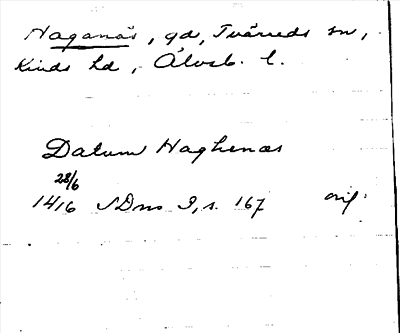 Haganäs, gd, Tvärreds sn,
Kinds hd, Älvsb. l.
Datum Haghenæs
28/6
1416 SDns I, s. 167 orig.